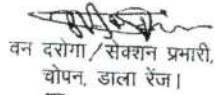 वन दरोगा/सेक्शन प्रभारी,
चोपन, डाला रेंज।